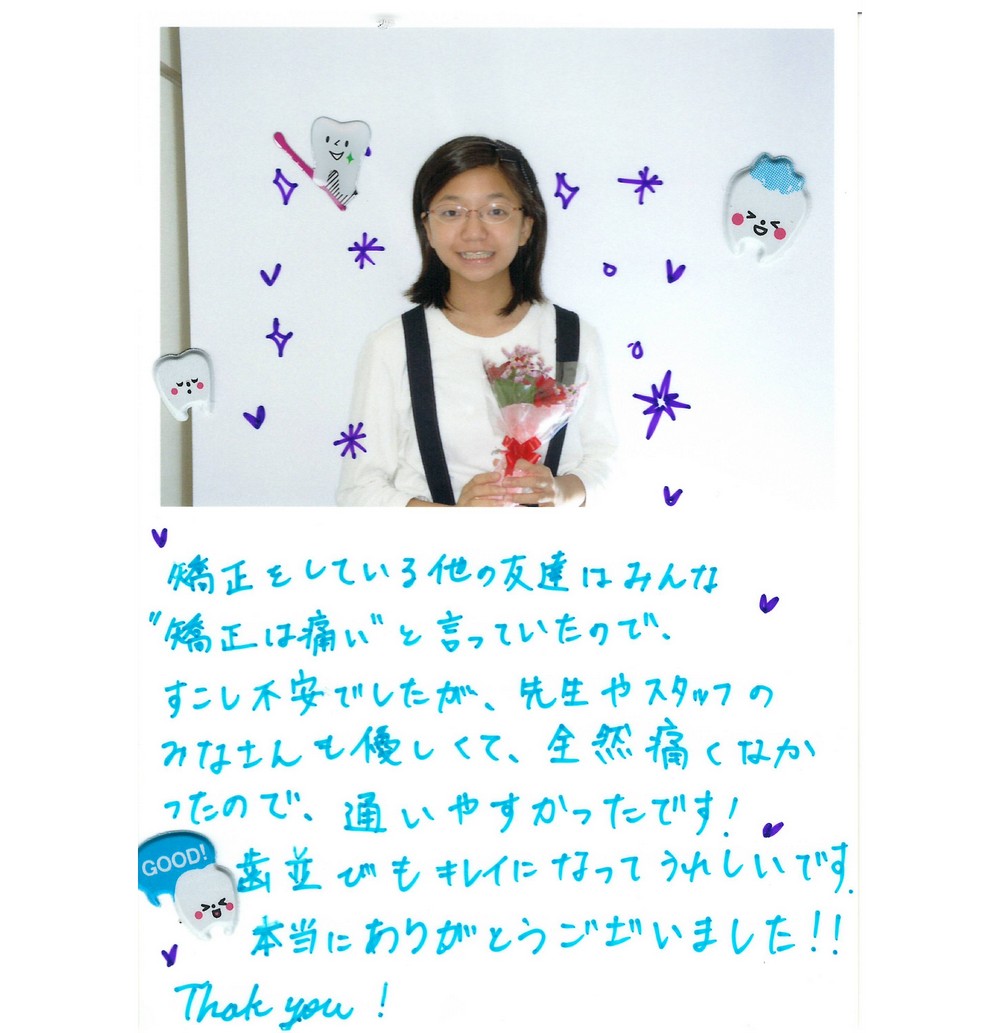 矯正をしている他の友達はみんな
"矯正は痛い"と言っていたので、
すこし不安でしたが、先生やスタッフの
みなさんも優しくて、全然痛くなか
ったので、通いやすかったです!
GOOD!
歯並びもキレイになってうれしいです.
本当にありがとうございました!!
Thak you!